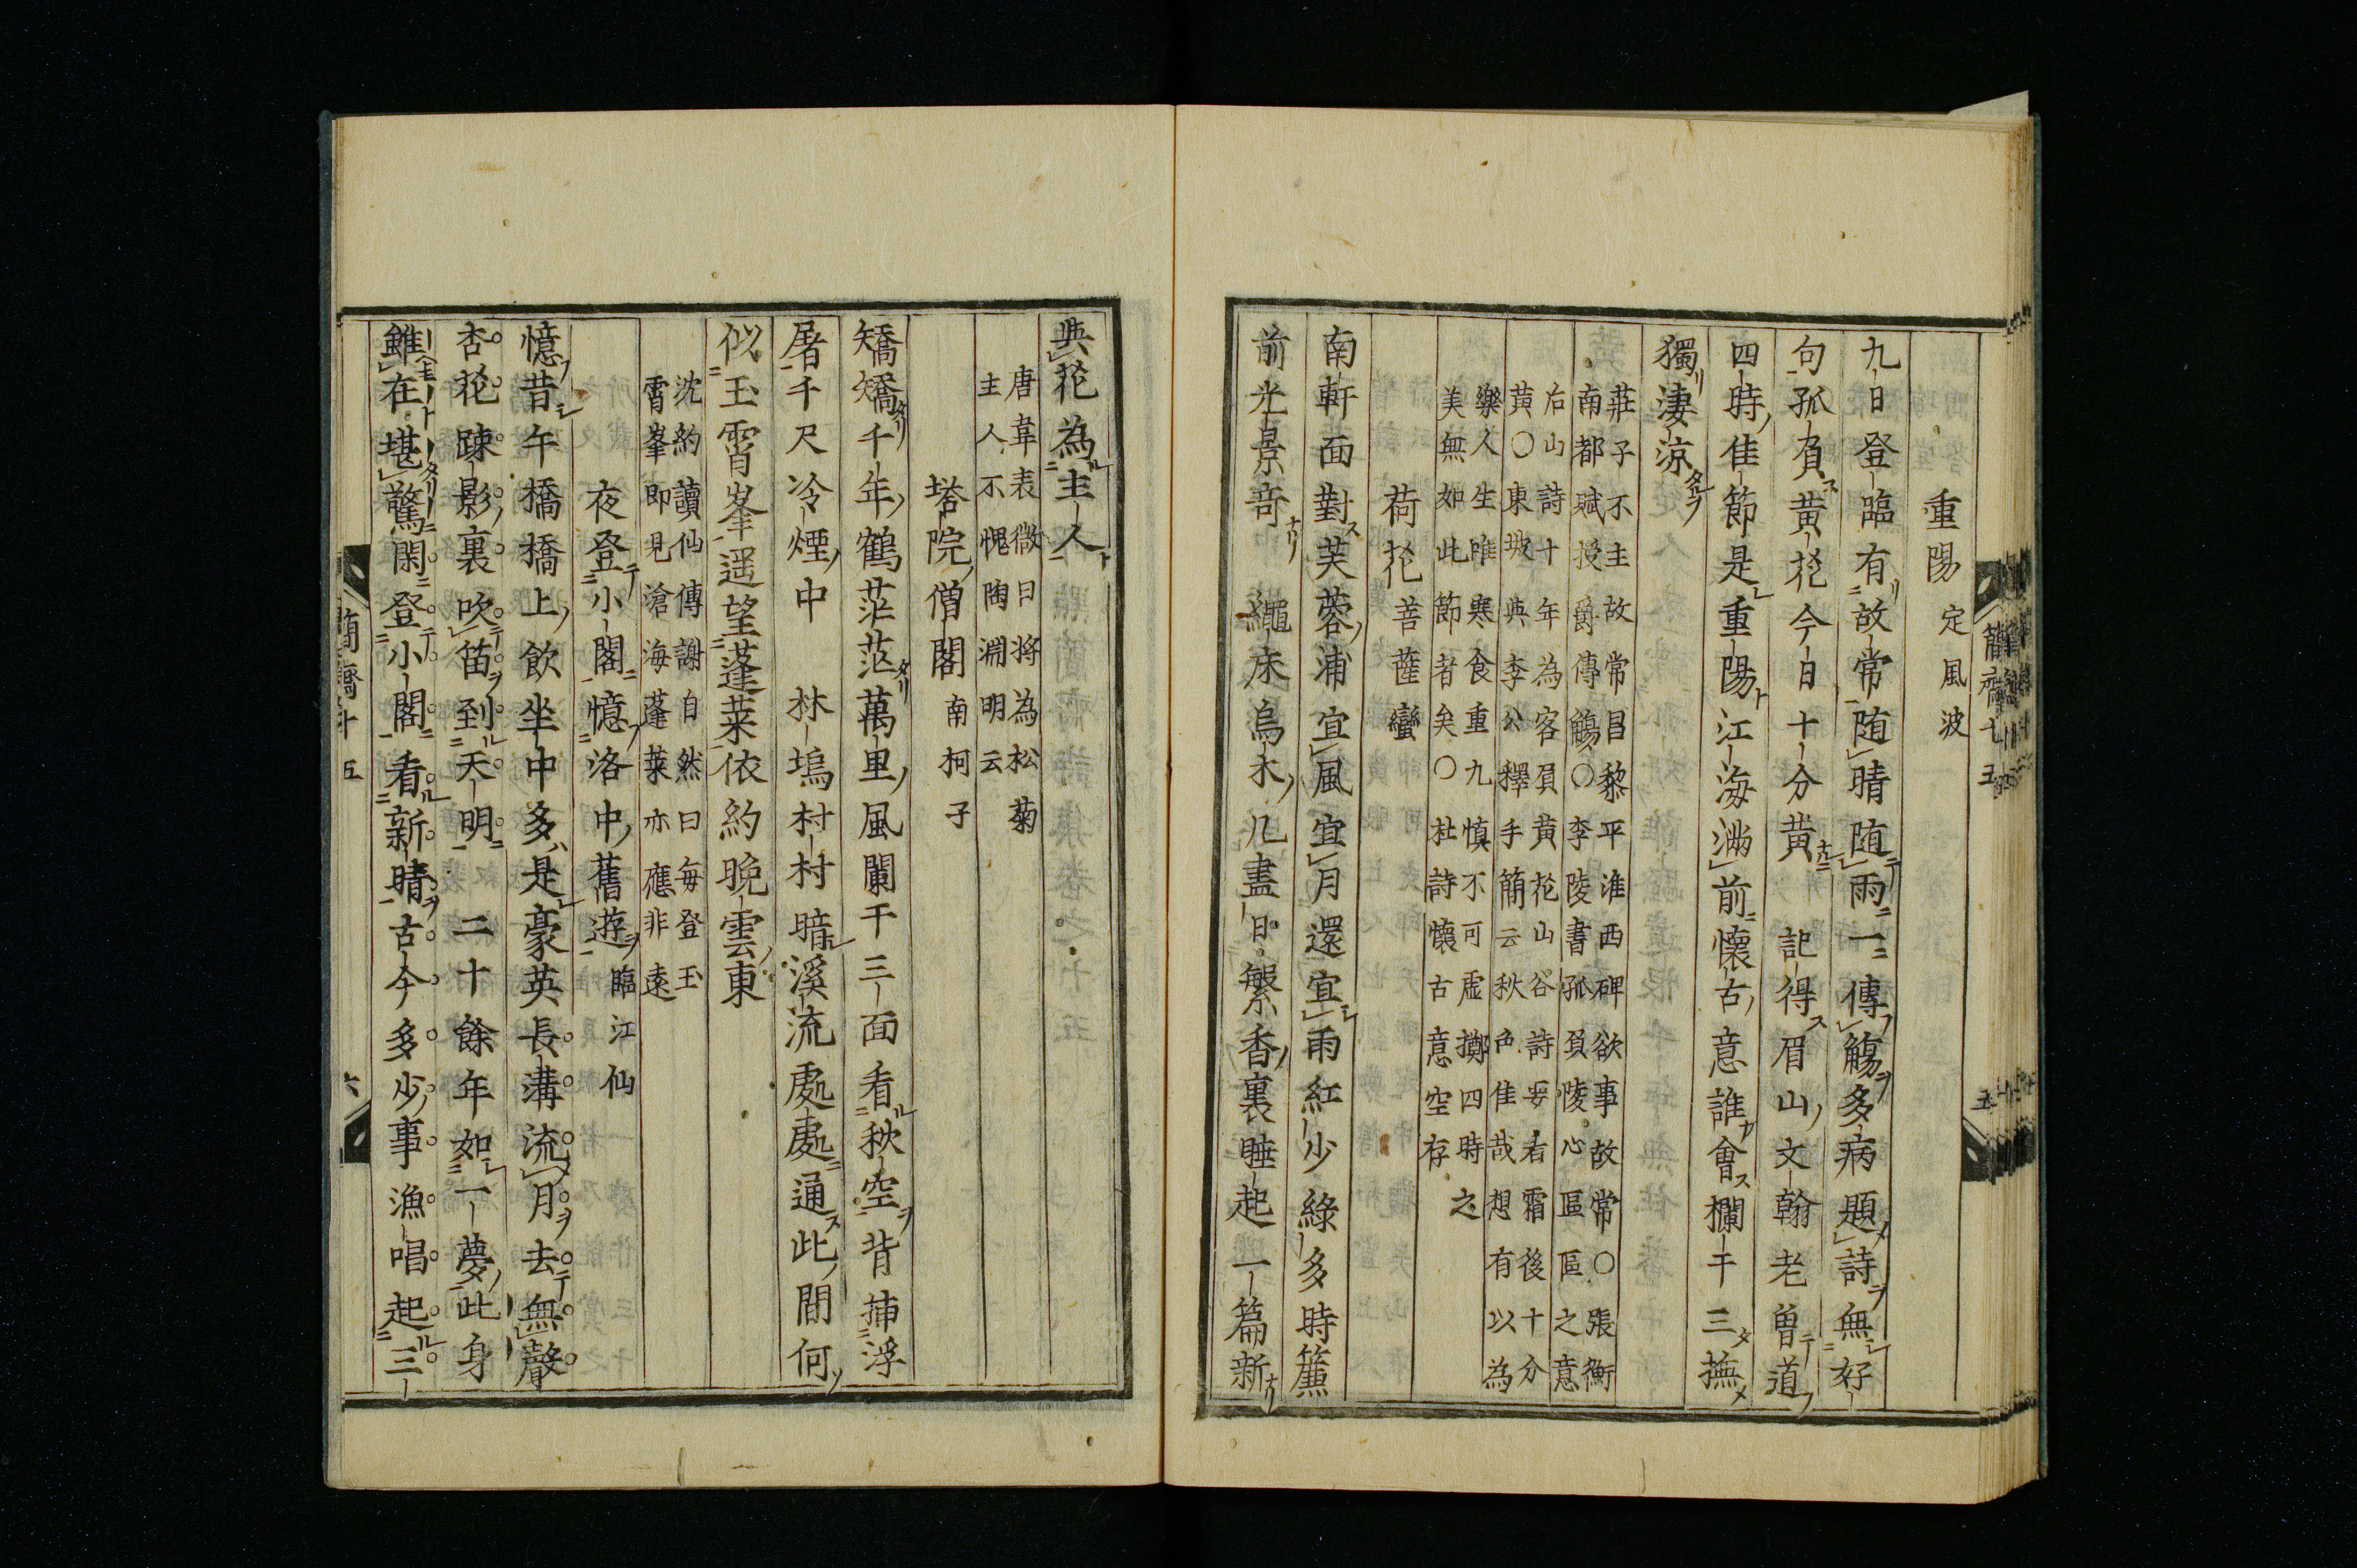 重陽 定風波
九日登臨有故常随晴随雨一傳觴多病題詩無好
句孤負黄花今日十分黄 記得眉山文翰老曽道
四時佳節是重陽江海満前懐古意誰會欄干三撫
獨淒涼
莊子不主故常昌黎平淮西碑欲事故常○張衡
南都賦授爵傳觴○李陵書孤負陵心區區之意
后山詩十年為客負黄花山谷詩要看霜後十分
黄○東坡與李公擇手簡云秋色佳哉想有以為
樂人生唯寒食重九慎不可虚擲四時之
美無如此節者矣○杜詩懐古意空存
荷花 菩薩蠻
南軒面對芙蓉浦宜風宜月還宜雨紅少緑多時簾
前光景竒 繩床烏木几盡日繁香裏睡起一篇新
與花為主人
唐韋表微曰将為松菊
主人不愧陶淵明云
塔院僧閣 南柯子
矯矯千年鶴茫茫萬里風闌干三面看秋空背挿浮
屠千尺冷煙中 林塢村村暗溪流處處通此間何
似玉霄峯遥望蓬莱依約晩雲東
沈約讀仙傳謝自然曰毎登玉
霄峯即見滄海蓬莱亦應非遠
夜登小閣憶洛中舊遊 臨江仙
憶昔午橋橋上飲坐中多是豪英長溝流月去無聲
杏花踈影裏吹笛到天明 二十餘年如一夢此身
雖在堪驚閑登小閣看新晴古今多少事漁唱起三
簡齋十五
六